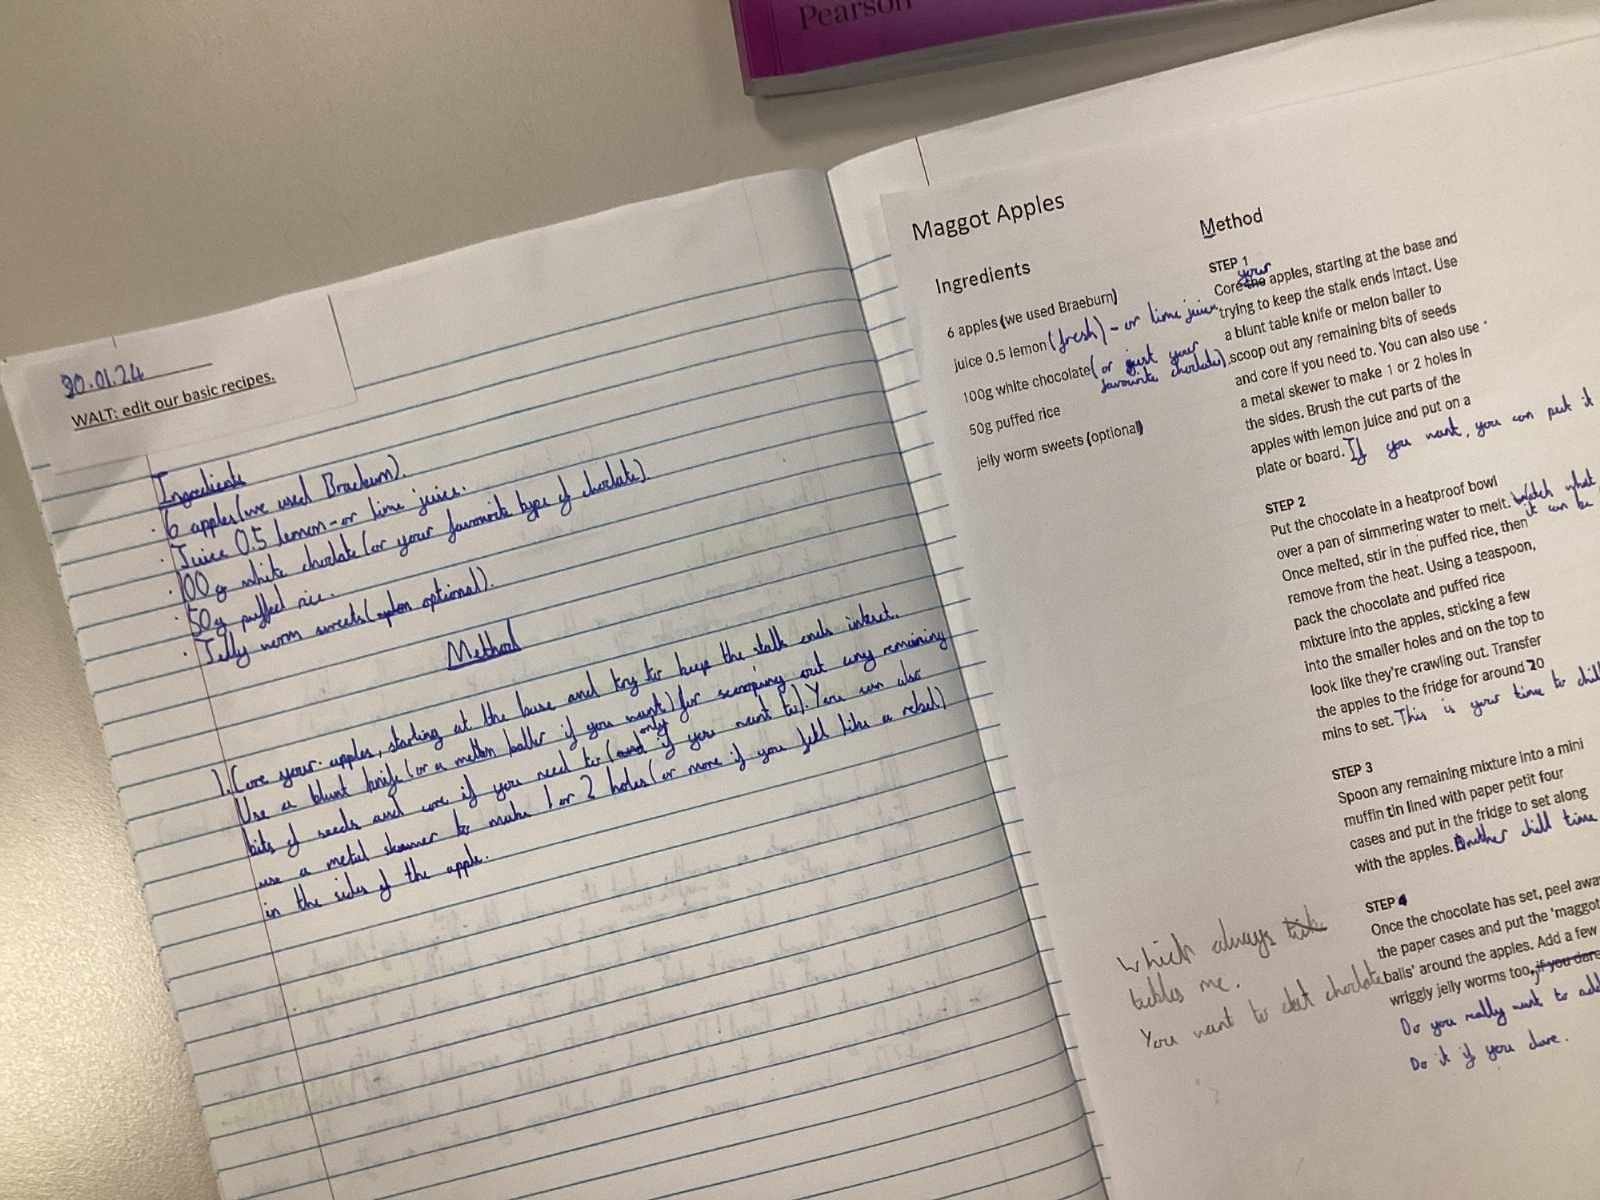 Pearson
30.01.24
WALT: edit our basic recipes.
Ingredients
· 6 apples (we used Braeburn).
· Juice 0.5 lemon - or lime juice.
· 100g white choclate (or your favourite type of choclate).
· 50g puffed rice.
· Jelly worm sweets (optional).
Method
1. Core your apples, starting at the base and try to keep the stalk ends intact.
Use a blunt knife (or a mellon baller if you want) for scooping out any remaining
bits of seeds and core if you need to (and only if you want to). You can also
use a metal skewer to make 1 or 2 holes (or more if you fell like a rebel)
in the sides of the apple.
Maggot Apples
Ingredients
6 apples (we used Braeburn)
juice 0.5 lemon (fresh) - or lime juice
100g white chocolate (or just your
favourite choclate).
50g puffed rice
jelly worm sweets (optional)
Method
STEP 1
your
Core the apples, starting at the base and
trying to keep the stalk ends intact. Use
a blunt table knife or melon baller to
scoop out any remaining bits of seeds
and core if you need to. You can also use
a metal skewer to make 1 or 2 holes in
the sides. Brush the cut parts of the
apples with lemon juice and put on a
plate or board. If you want, you can put it
STEP 2
Put the chocolate in a heatproof bowl
over a pan of simmering water to melt. Watch what
Once melted, stir in the puffed rice, then it can be
remove from the heat. Using a teaspoon,
pack the chocolate and puffed rice
mixture into the apples, sticking a few
into the smaller holes and on the top to
look like they're crawling out. Transfer
the apples to the fridge for around 20
mins to set. This is your time to chill
STEP 3
Spoon any remaining mixture into a mini
muffin tin lined with paper petit four
cases and put in the fridge to set along
with the apples. Another chill time
STEP 4
Once the chocolate has set, peel away
the paper cases and put the 'maggot
balls' around the apples. Add a few
wriggly jelly worms too, if you dare
Do you really want to add
Do it if you dare.
Which always
me.
You want to choclate